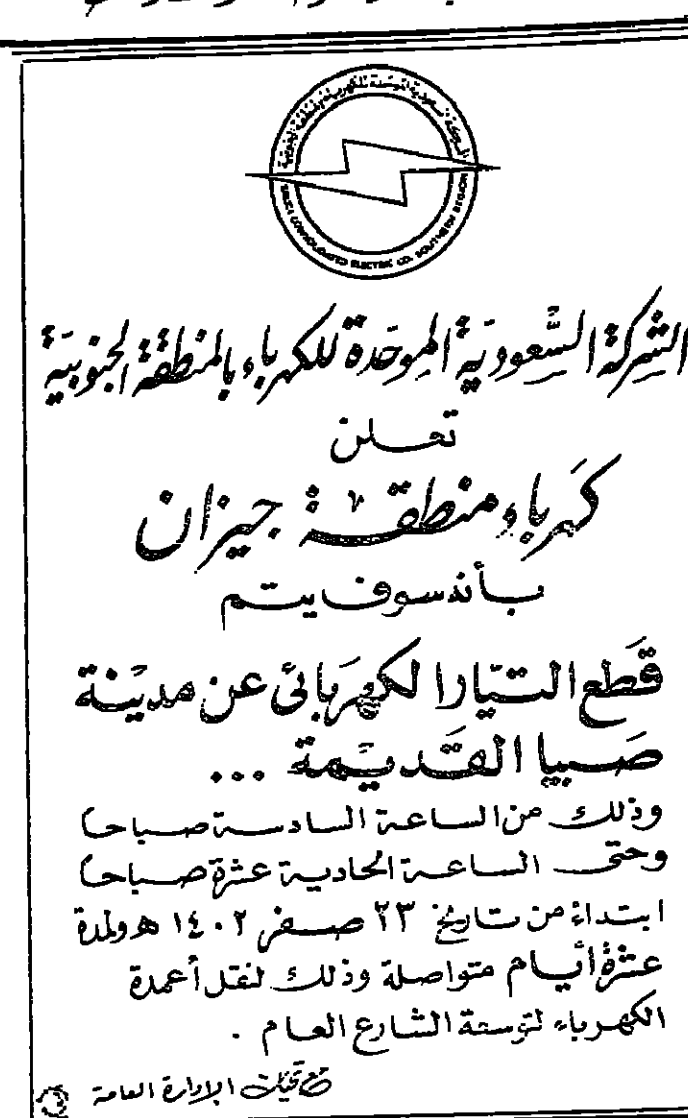 الشركة السعودية الموحدة للكهرباء بالمنطقة الجنوبية
SAUDI CONSOLIDATED ELECTRIC CO. SOUTHERN REGION
الشركة السعودية الموحدة للكهرباء بالمنطقة الجنوبية
تعلن
كهرباء منطقة جيزان
بأنه سوف يتم
قطع التيار الكهربائى عن مدينة
صبيا القديمة ...
وذلك من الساعة السادسة صباحاً
وحتى الساعة الحادية عشرة صباحاً
ابتداءً من تاريخ ٢٣ صفر ١٤٠٢ هـ ولمدة
عشرة أيام متواصلة وذلك لنقل أعمدة
الكهرباء لتوسعة الشارع العام .
مع تحيات الإدارة العامة